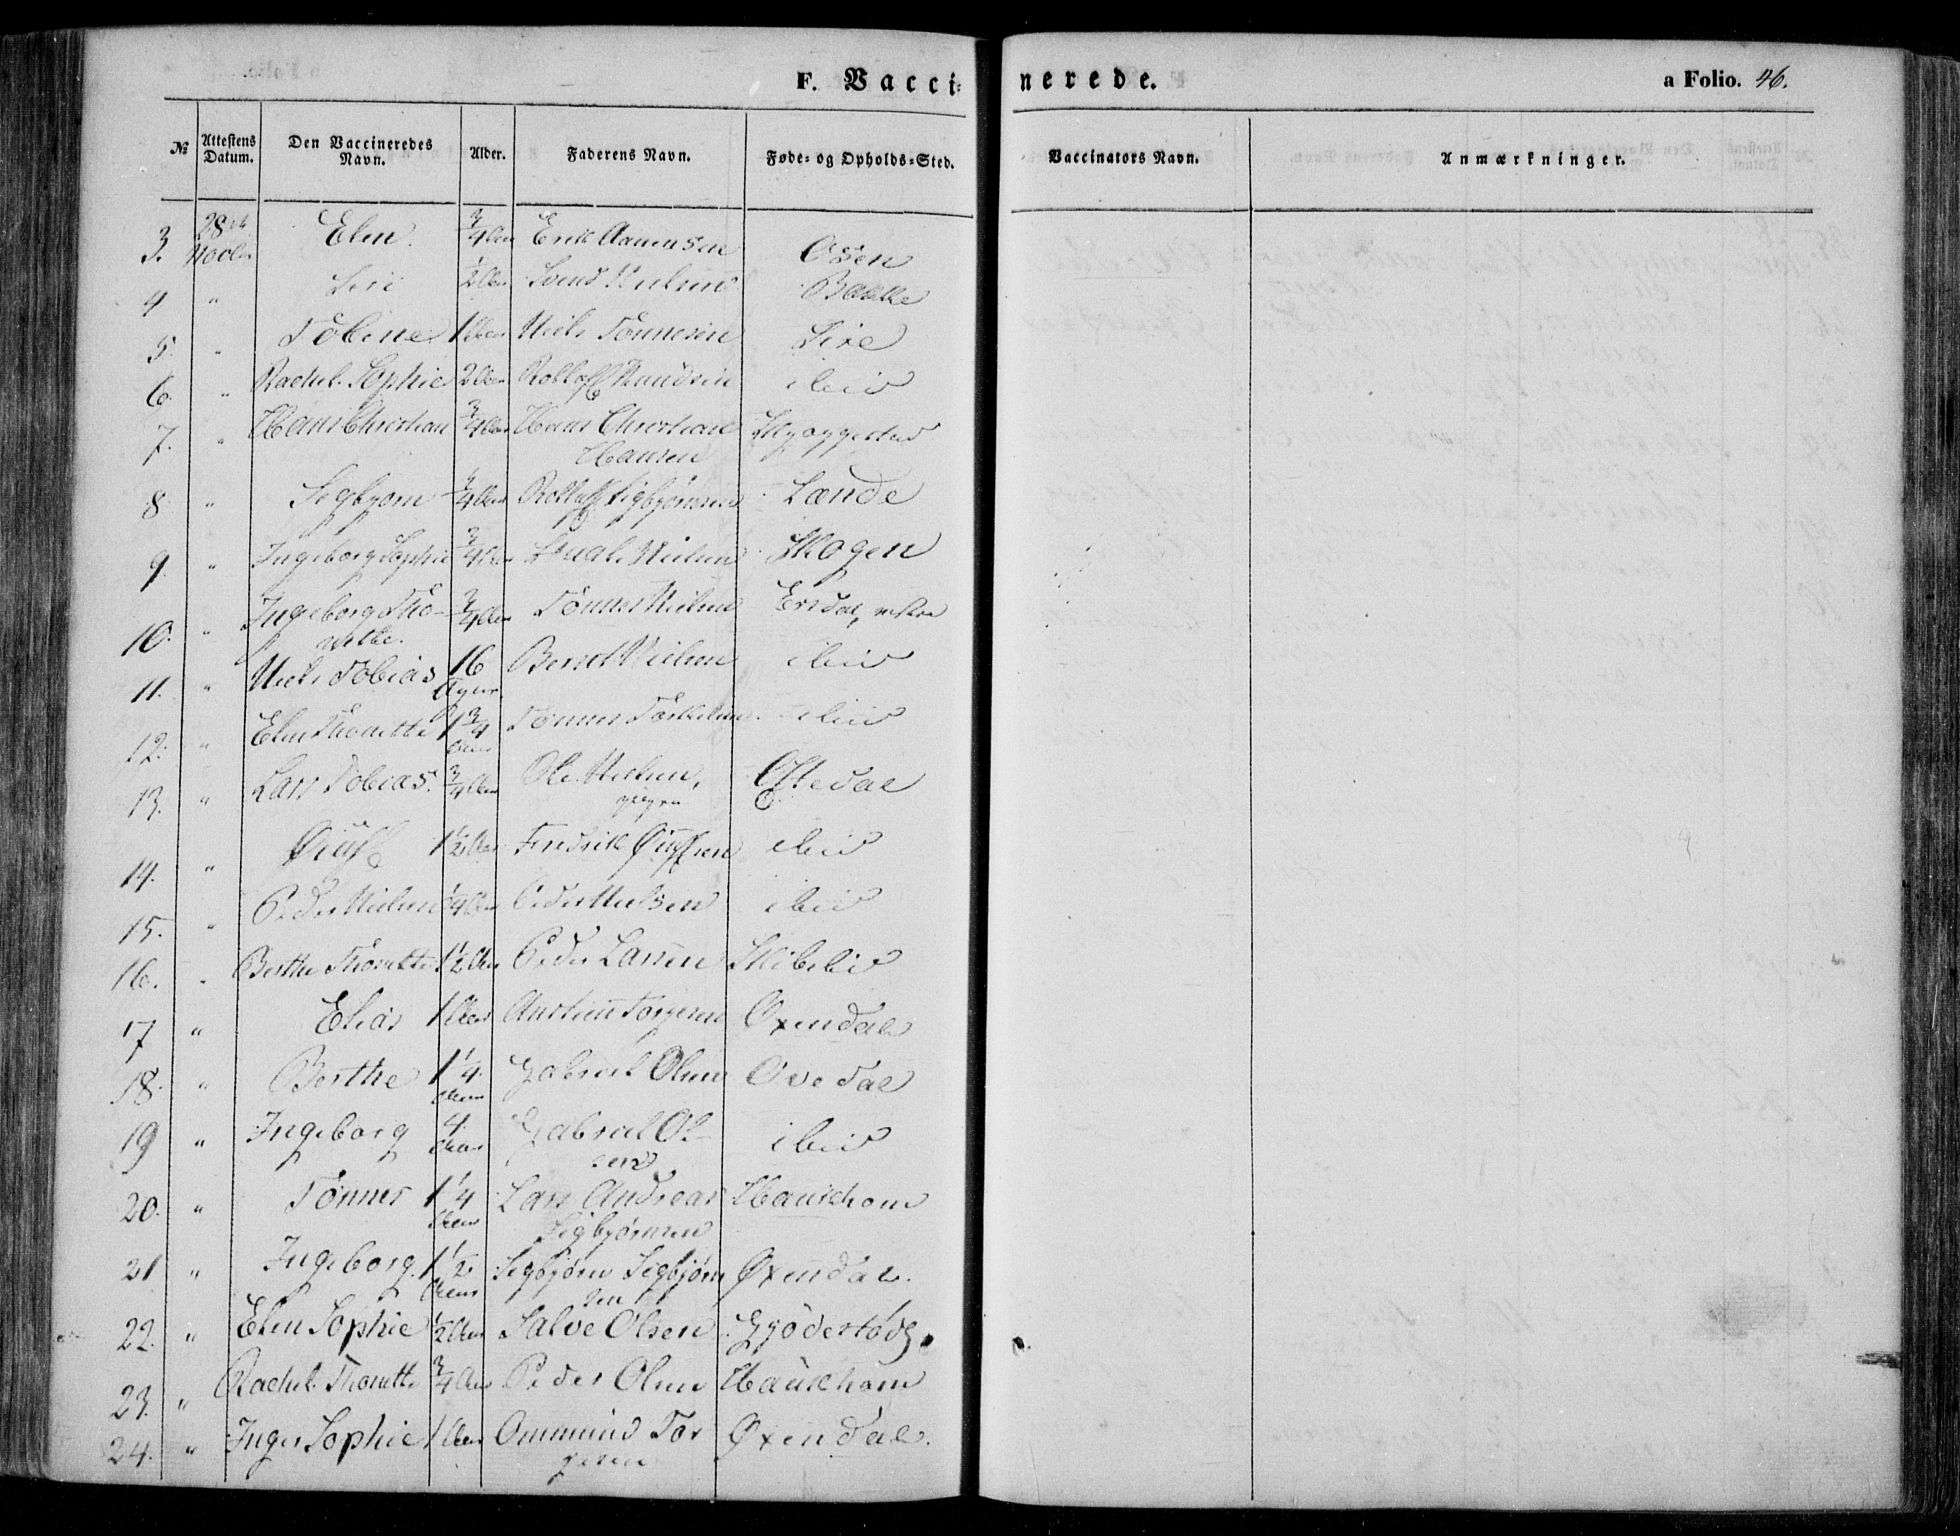 F. Vacci=
nerede.
a Folio. 46.
№ Attestens Datum. Den Vaccineredes Navn. Alder. Faderens Navn. Føde= og Opholds=Sted. Vaccinators Navn. Anmærkninger.
3. 28de Novbr Elen. 3/4 Aar Erik Aanensen Osen
4 " Siri 1/2 Aar Svend Nielsen Bakke
5. " Tobine 1 Aar Niels Tønnesen Sire
6. " Rachel Sophie 2 Aar Rolleff Knudsen ibid
7. " Hans Christian 3/4 Aar Hans Christian
Hansen
8 " Sigbjørn 1/4 Aar Rolleff Sigbjørnsen Lænde
9. " Ingeborg Sophie 3/4 Aar Nielsen Skogen
10. " Ingeborg Tho-
nette. 3/4 Aar Tønnes Nielsen Ersdal, vestre
11. " Niels Tobias 16 Uger Bernt Nielsen ibid
12. " Elen Thonette 1 3/4 Aar Tønnes Torkelsen ibid
13. " Lars Tobias. 3/4 Aar Ole Nielsen, Oftedal
14. " Øiuff 1 1/2 Aar Fredrik Øiuffsen ibid
15. " Peder Nielsen 1/4 Aar Peder Nielsen ibid
16. " Berthe Thonette 1 1/2 Aar Peder Larsen Skibelid
17 " Elias 1 Aar Austen Torgersen Øxendal
18. " Berthe 1 1/4 Aar Gabriel Olsen Ovedal
19 " Ingeborg 4 Aar Gabriel Ol-
sen ibid
20. " Tønnes 1 1/4 Aar Lars Andreas
Sigbjørnsen Haukhom
21 " Ingeborg. 1 1/2 Aar Sigbjørn Sigbjørn
sen Øxendal.
22. " Elen Sophie 1/2 Aar Salve Olsen Gjødestøl
23. " Rachel Thonette 3/4 Aar Peder Olsen Haukhom
24. " Inger Sophie 1 Aar Ommund Tor
gersen Øxendal.